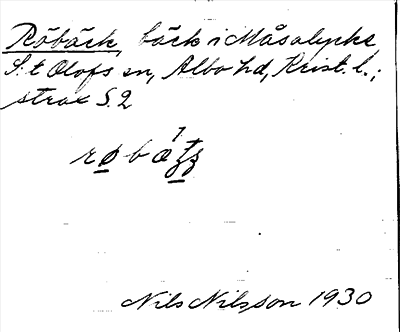 Röbäck, bäck i Måsalycke,
S:t Olofs sn, Albo hd, Krist. l.;
strax S.
Nils Nilsson 1930